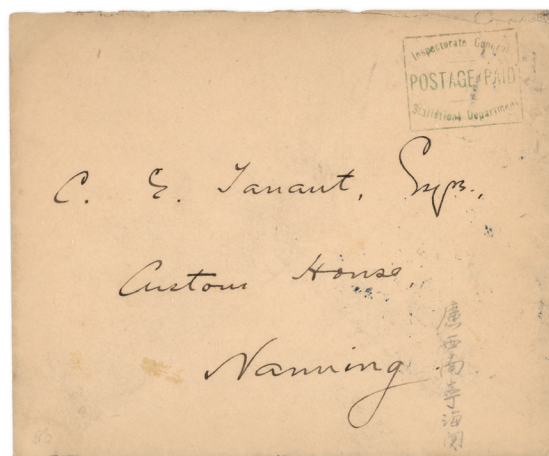 Inspectorate General
POSTAGE PAID
Statistical Department
C. E. Tanant, Esqr.,
Custom House,
Nanning
廣西南寧海関